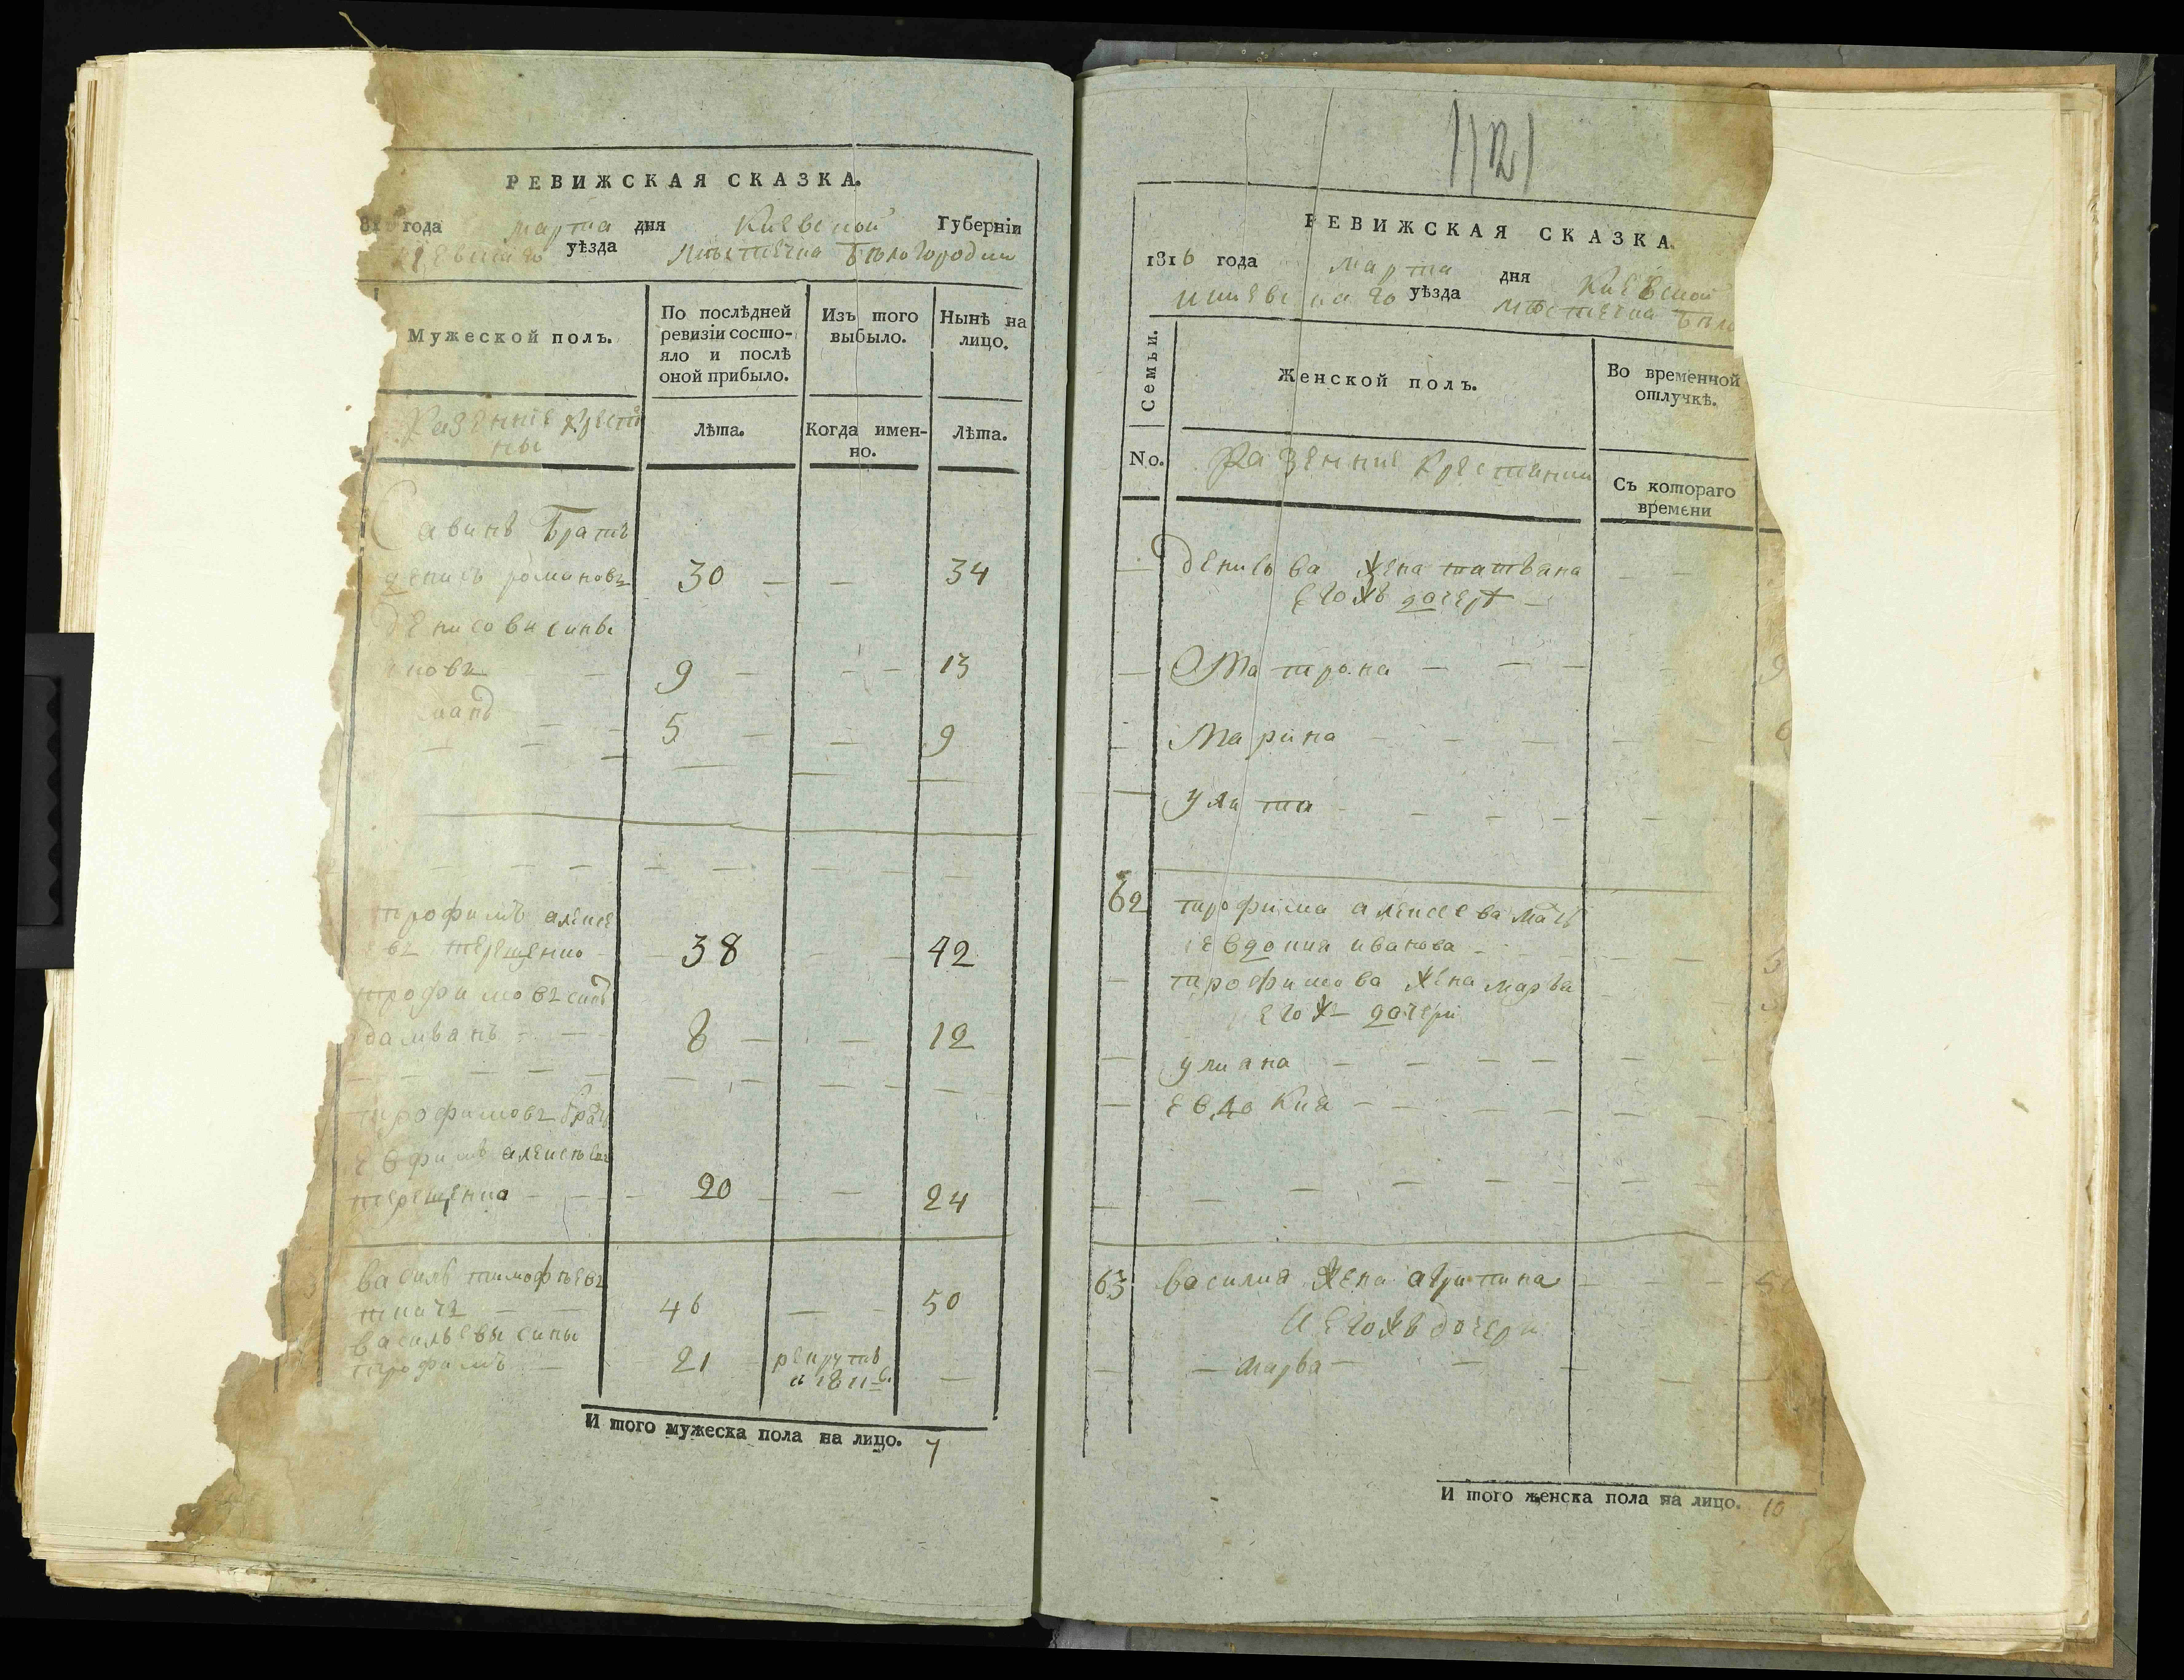 РЕВИЖСКАЯ СКАЗКА.
года марта дня Киевской Губерніи
уѣзда Мѣстечка Бѣлогородки
Мужеской полъ.
По послѣдней ревизіи состояло и послѣ оной прибыло.
Изъ того выбыло.
Нынѣ на лицо.
Казенние Крестя
ны
Лѣта.
Когда именно.
Лѣта.
Савинъ Братъ
денисъ романовъ 30 — — 34
Денисови сины
9 — — 13
5 — — 9
трофимъ алексе
евъ терещенко 38 — — 42
трофимовъ синъ
дамианъ 8 — — 12
трофимовъ братъ
ефимъ алексеевъ
терещенко 20 — — 24
василь тимофѣевъ
ткачъ — 46 — — 50
васильевы сины
трофимъ — 21 рекрутъ —
И того мужеска пола на лицо. 7
1121
РЕВИЖСКАЯ СКАЗКА.
1816 года марта дня Киевской
уѣзда мѣстечка Бѣло
Семьи.
Женской полъ.
Во временной отлучкѣ.
No.
Казенние Крестянки
Съ котораго времени
— денисова жена татьана
— Матрона — — —
— Марина — — —
— улита — — —
62 трофима алексеева мать
евдокия иванова
— трофимова жена марва
егож дочери
— улиана — — —
— евдокия — — —
63 василия жена агрипина
Его ж дочери
— марва —
И того женска пола на лицо. 10